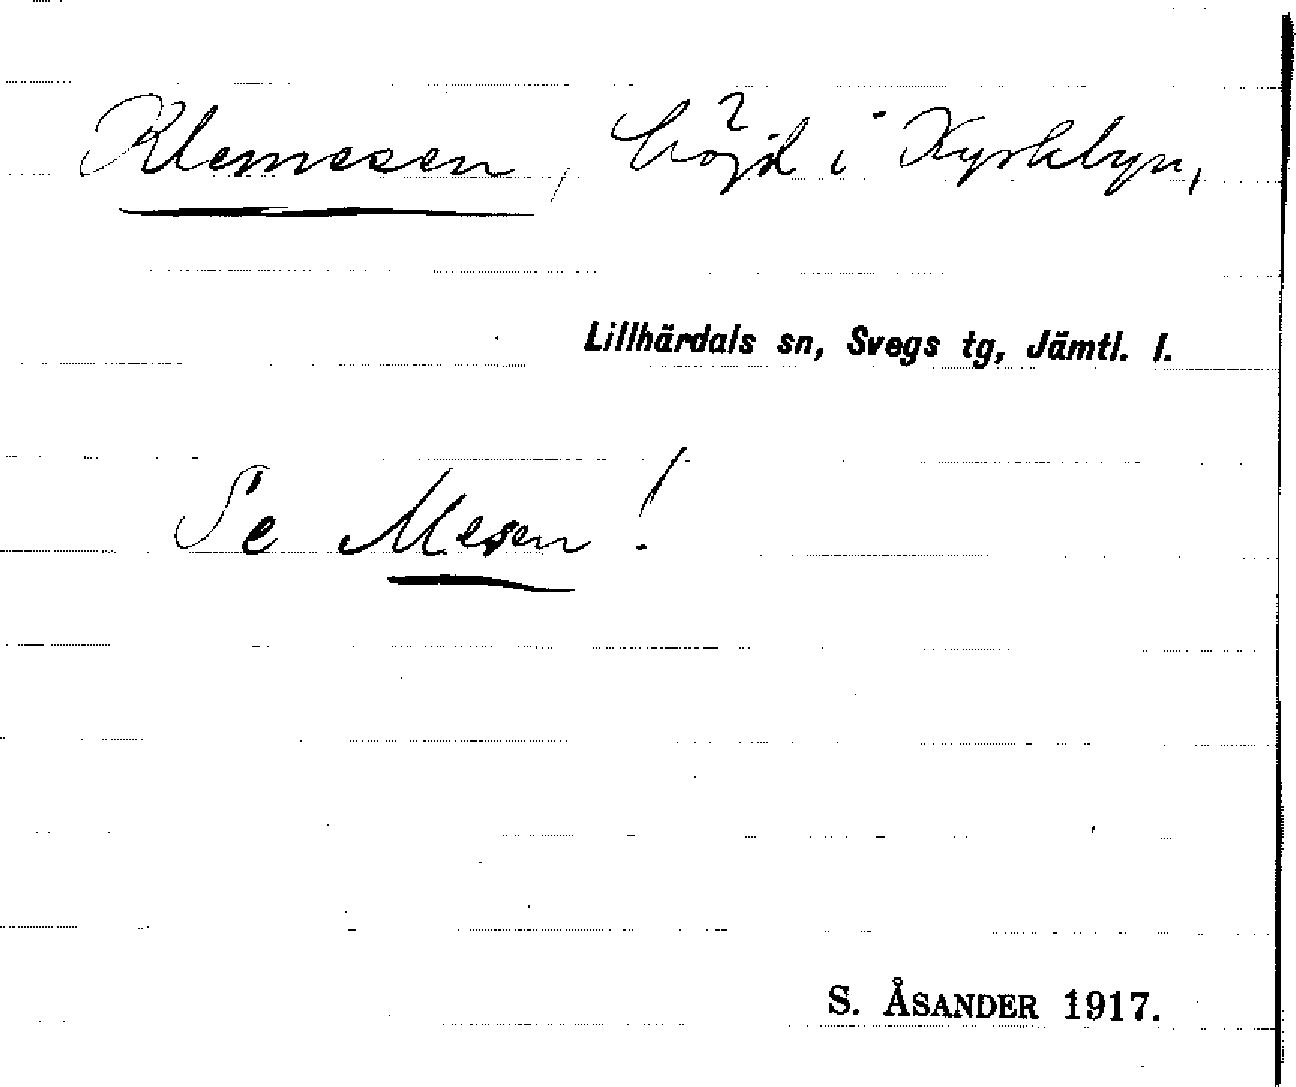 Klemesen, höjd i Kyrkbyn,
Lillhärdals sn, Svegs tg, Jämtl. l.
Se Mesen!
S. ÅSANDER 1917.